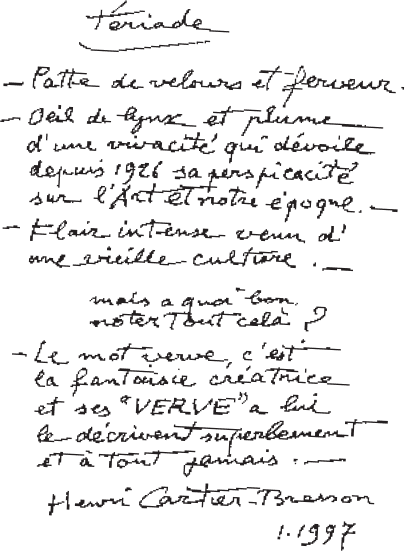 Tériade
— Patte de velours et ferveur.
— Oeil de lynx et plume
d'une vivacité qui dévoile
depuis 1926 sa perspicacité
sur l'Art et notre époque. —
— Flair intense venu d'
une vieille culture. —
mais a quoi bon
noter tout celà ?
— Le mot verve, c'est
la fantaisie créatrice
et ses "VERVE" a lui
le décrivent superbement
et à tout jamais. —
Henri Cartier-Bresson
1.1997